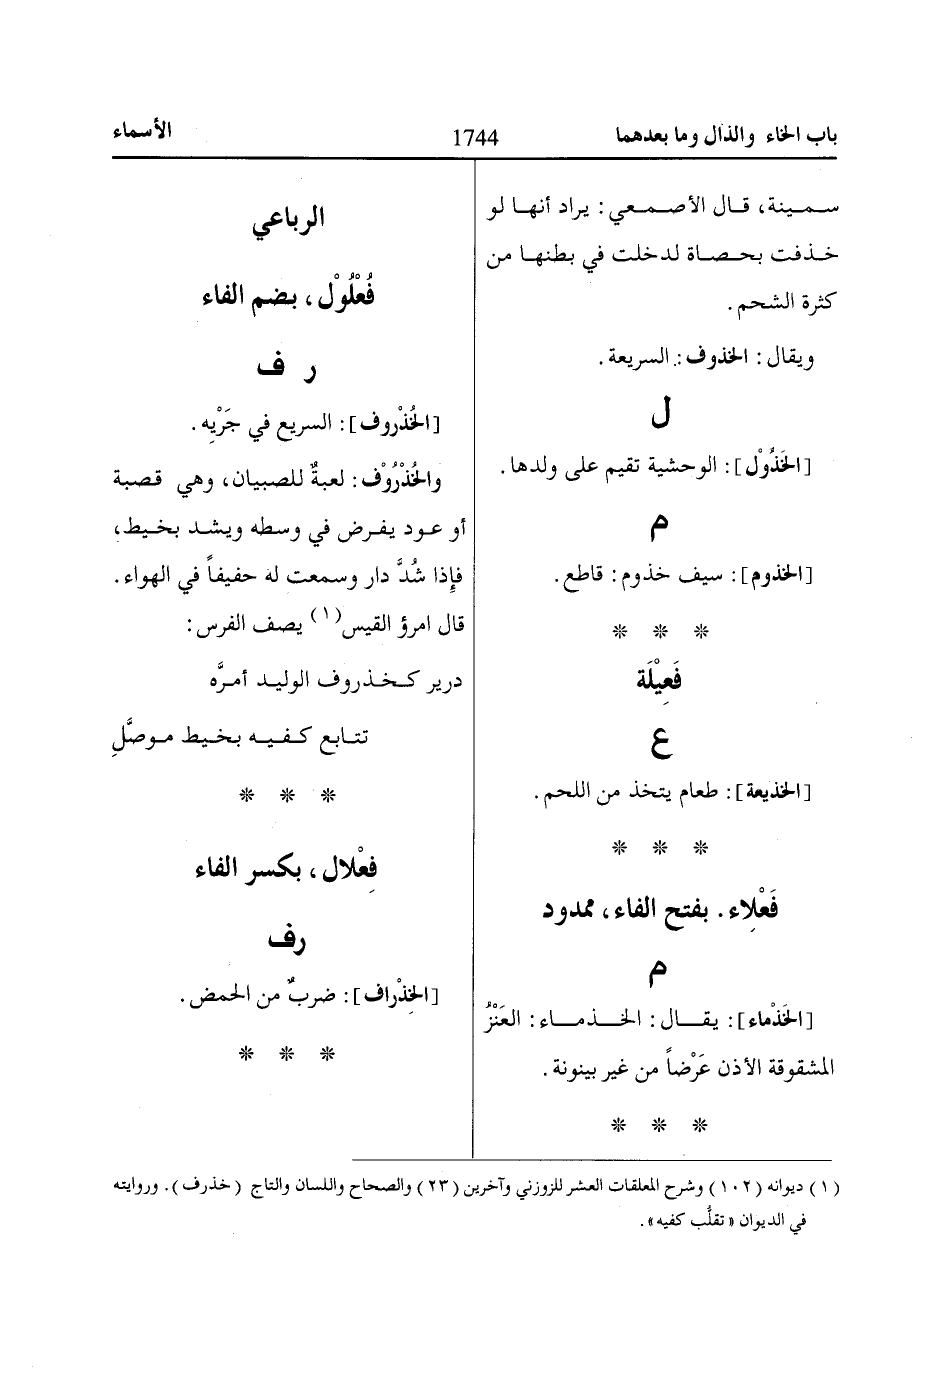 باب الخاء والذال وما بعدهما
1744
الأسماء
سـمـينة، قـال الأصـمـعي: يراد أنهـا لو
خـذفت بحـصـاة لدخلت في بطنهـا من
كثرة الشحم.
ويقال: الخذوف: السريعة.
ل
[الخَذُوْل]: الوحشية تقيم على ولدها.
م
[الخذوم]: سيف خذوم: قاطع.
* * *
فَعِيْلَة
ع
[الخذيعة]: طعام يتخذ من اللحم.
* * *
فَعْلاء. بفتح الفاء، ممدود
م
[الخَذْماء]: يقـال: الخـذمـاء: العَنْزُ
المشقوقة الأذن عَرْضاً من غير بينونة.
* * *
الرباعي
فُعْلُوْل، بضم الفاء
ر ف
[الخُذْروف]: السريع في جَرْيِه.
والخُذْرُوْف: لعبةٌ للصبيان، وهي قصبة
أو عـود يفـرض في وسطه ويشـد بخـيـط،
فإذا شُدَّ دار وسمعت له حفيفاً في الهواء.
قال امرؤ القيس(١) يصف الفرس:
درير كـخـذروف الوليـد أمـرَّه
تتـابع كـفـيـه بخـيط مـوصَّلِ
* * *
فِعْلال، بكسر الفاء
رف
[الخِذْراف]: ضربٌ من الحمض.
* * *
(١) ديوانه (١٠٢) وشرح المعلقات العشر للزوزني وآخرين (٢٣) والصحاح واللسان والتاج (خذرف). وروايته
في الديوان «تقلُّب كفيه».